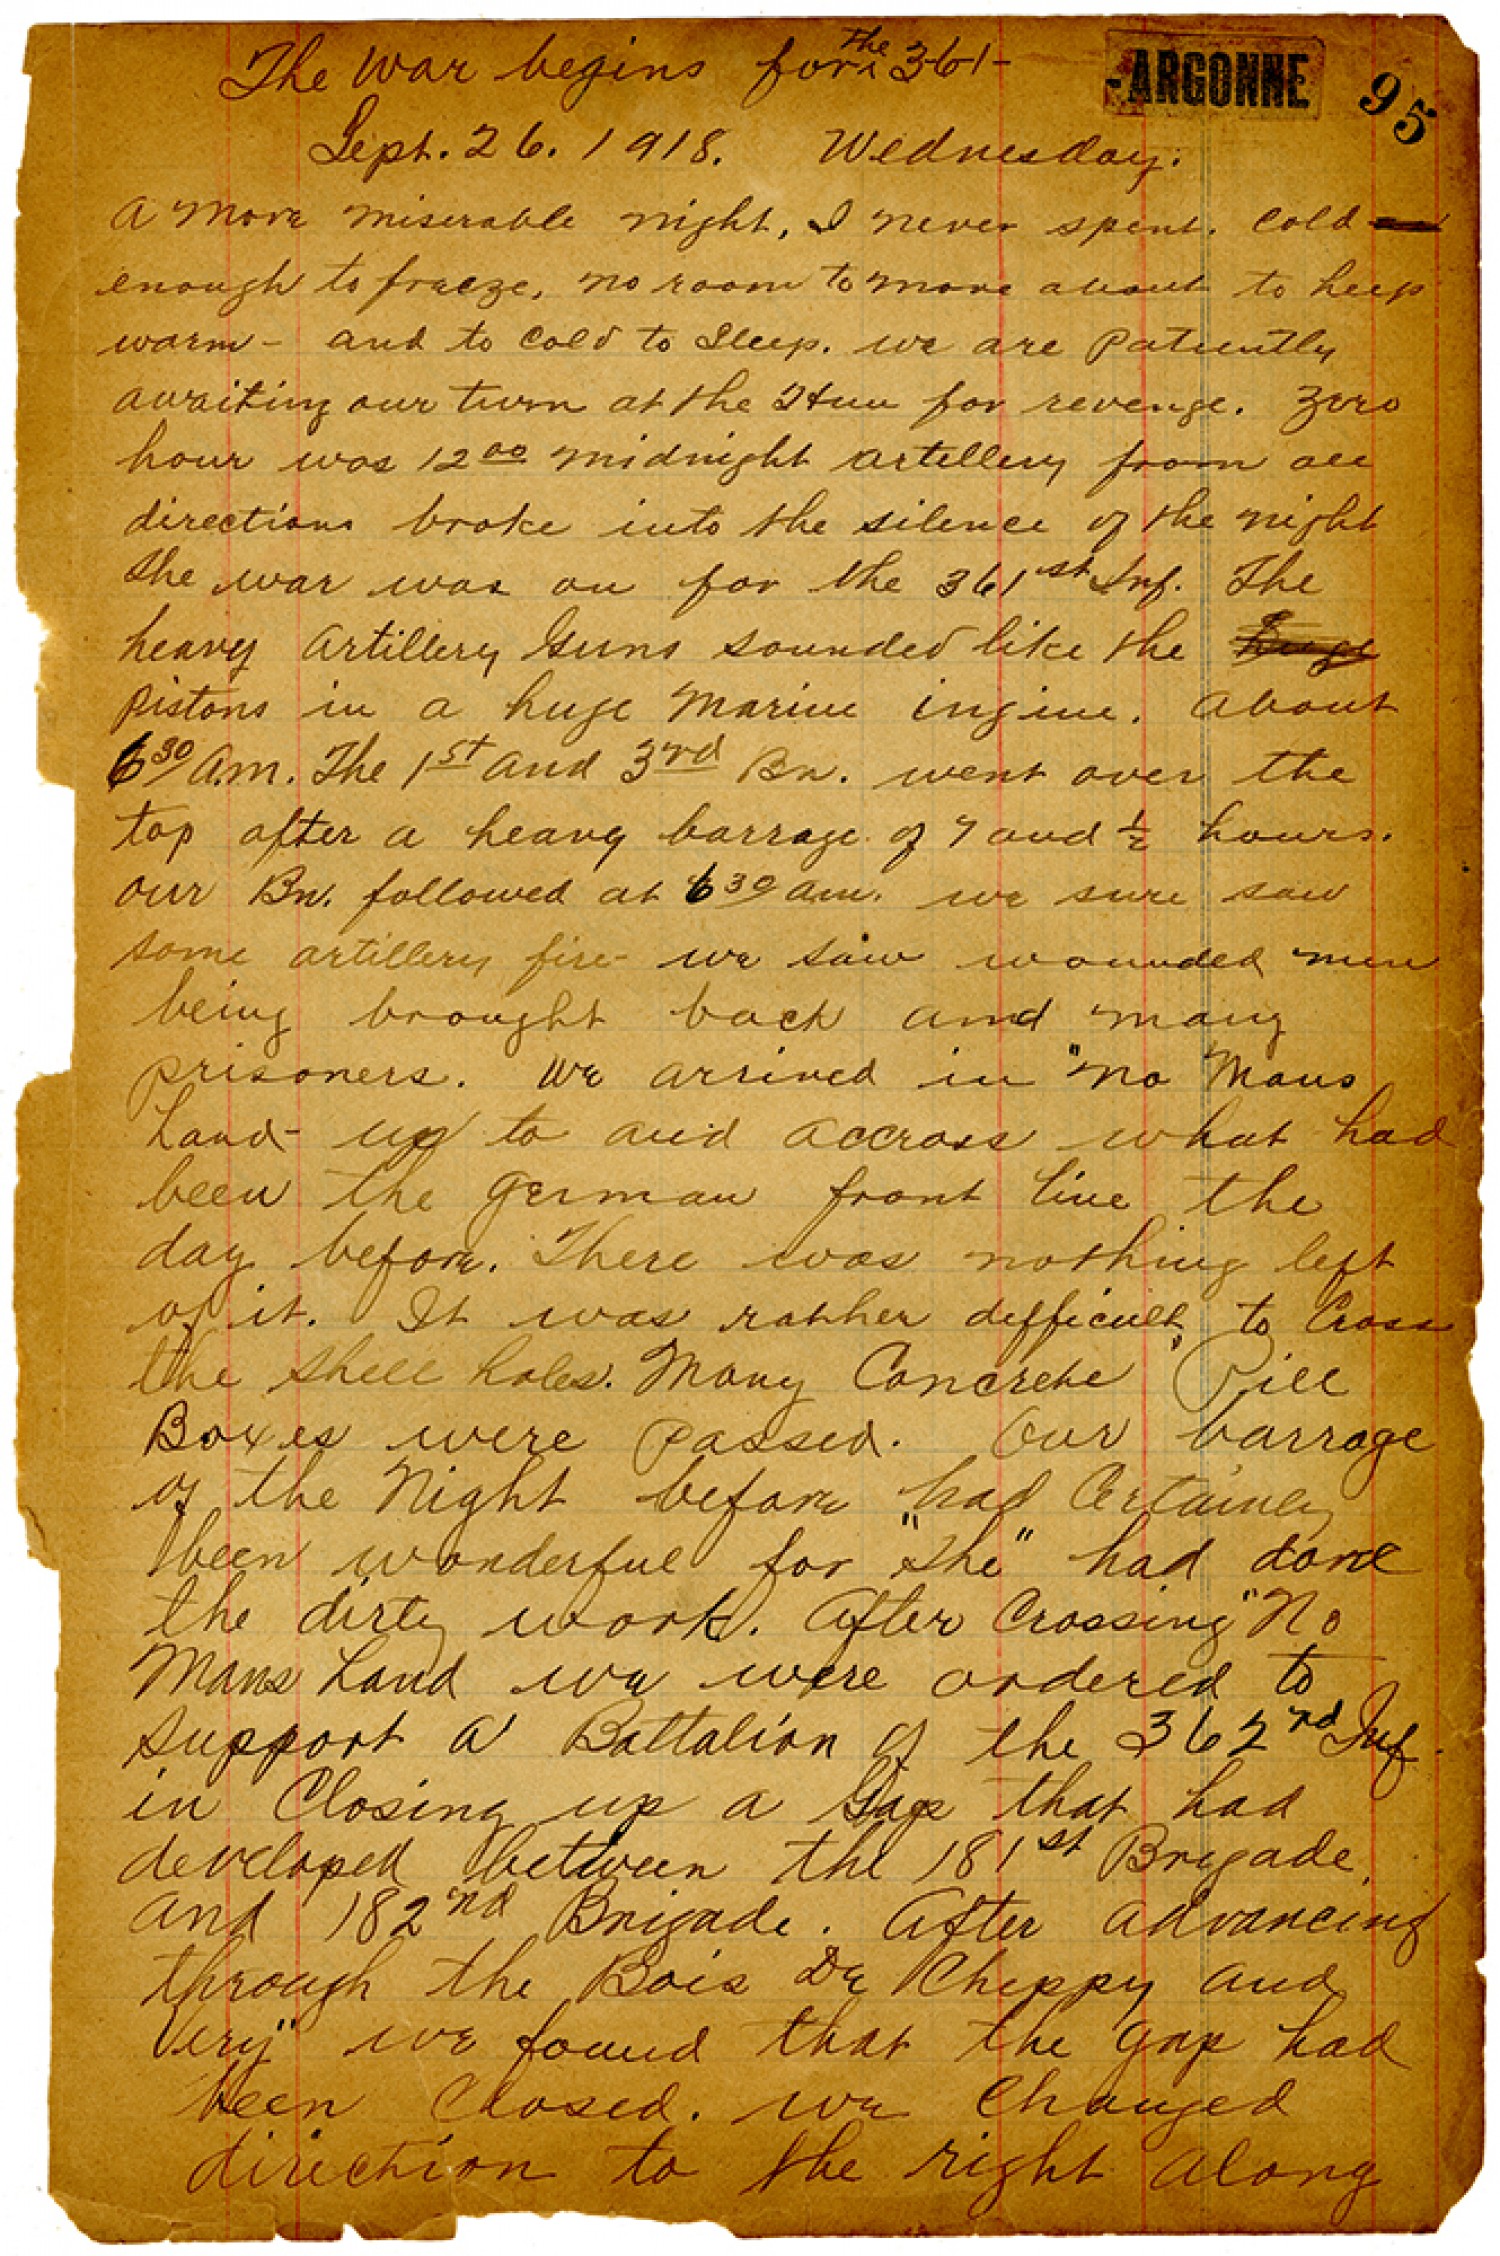 The war begins for the 361- -ARGONNE 95
Sept. 26. 1918. Wednesday.
A more miserable night, I never spent. Cold
enough to freeze, no room to move about to keep
warm - and to cold to sleep. we are patiently
awaiting our turn at the Hun for revenge. Zero
hour was 12 00 midnight artillery from all
directions broke into the silence of the night
the war was on for the 361st Inf. The
heavy artillery Guns sounded like the huge
pistons in a huge Marine ingine. About
6 30 A.m. The 1st and 3rd Bn. went over the
top after a heavy barrage of 7 and ½ hours.
our Bn. followed at 6 30 am. we sure saw
some artillery fire - we saw wounded men
being brought back and many
prisoners. We arrived in "no Mans
Land - up to and accross what had
been the German front line the
day before. There was nothing left
of it. It was rather difficult to Cross
the shell holes. Many Concrete "Pill
Boxes were passed. Our barrage
of the Night before had Certainly
been wonderful for "she" had done
the dirty work. After Crossing "No
Mans Land we were ordered to
support a Battalion of the 362nd Inf.
in Closing up a Gap that had
developed between the 181st Brigade
and 182nd Brigade. After advancing
through the Bois De Cheppy and
Very" we found that the gap had
been Closed. we Changed
direction to the right along